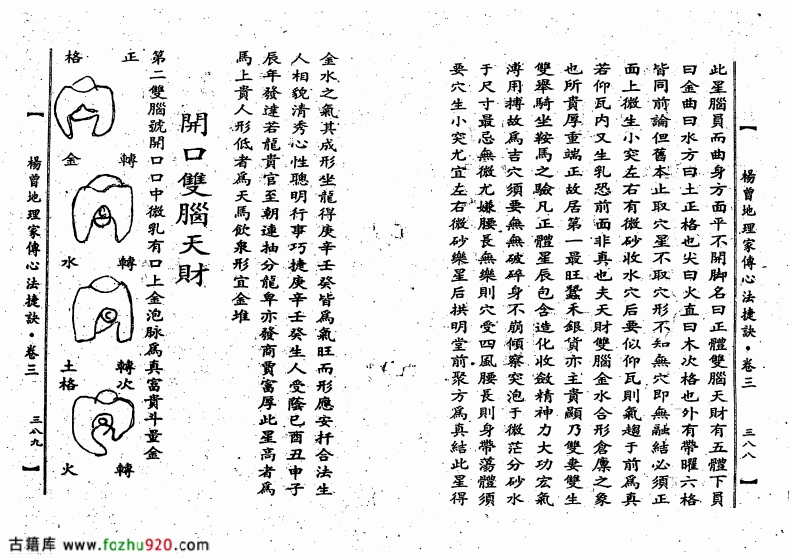 楊曾地理家傳心法捷訣·卷三 三八八
此星腦員而曲身方面平不開脚名曰正體雙腦天財有五體下員
曰金曲曰水方曰土正格也尖曰火直曰木次格也外有帶曜六格
皆同前論但舊本止取穴星不取穴形不知無穴即無融結必須正
面上微生小突左右有微砂收水穴后要似仰瓦則氣趨于前爲真
若仰瓦內又生乳恐前面非真也夫天財雙腦金水合形倉廩之象
也所貴厚重端正故居第一最旺蠶禾銀貨亦主貴顯乃雙妻雙生
雙舉騎坐鞍馬之驗凡正體星辰包含造化收斂精神力大功宏氣
溥用摶故爲吉穴須要無無破碎身不崩傾察突泡于微茫分砂水
于尺寸最忌無微尤嫌腰長無樂則穴受四風腰長則身帶蕩體須
要穴生小突尤宜左右微砂樂星后拱明堂前聚方爲真結此星得
金水之氣其成形坐龍得庚辛壬癸皆爲氣旺而形應安扦合法生
人相貌清秀心性聰明行事巧捷庚辛壬癸生人受蔭巳酉丑申子
辰年發達若龍貴官至朝連抽分龍卑亦發商賈富厚此星高者爲
馬上貴人形低者爲天馬飲泉形宜金堆
開口雙腦天財
第二雙腦號開口口中微乳有口上金泡脉爲真富貴斗量金
正格
轉金
轉水
轉次土格
轉火
楊曾地理家傳心法捷訣·卷三 三八九
古籍库 www.fozhu920.com